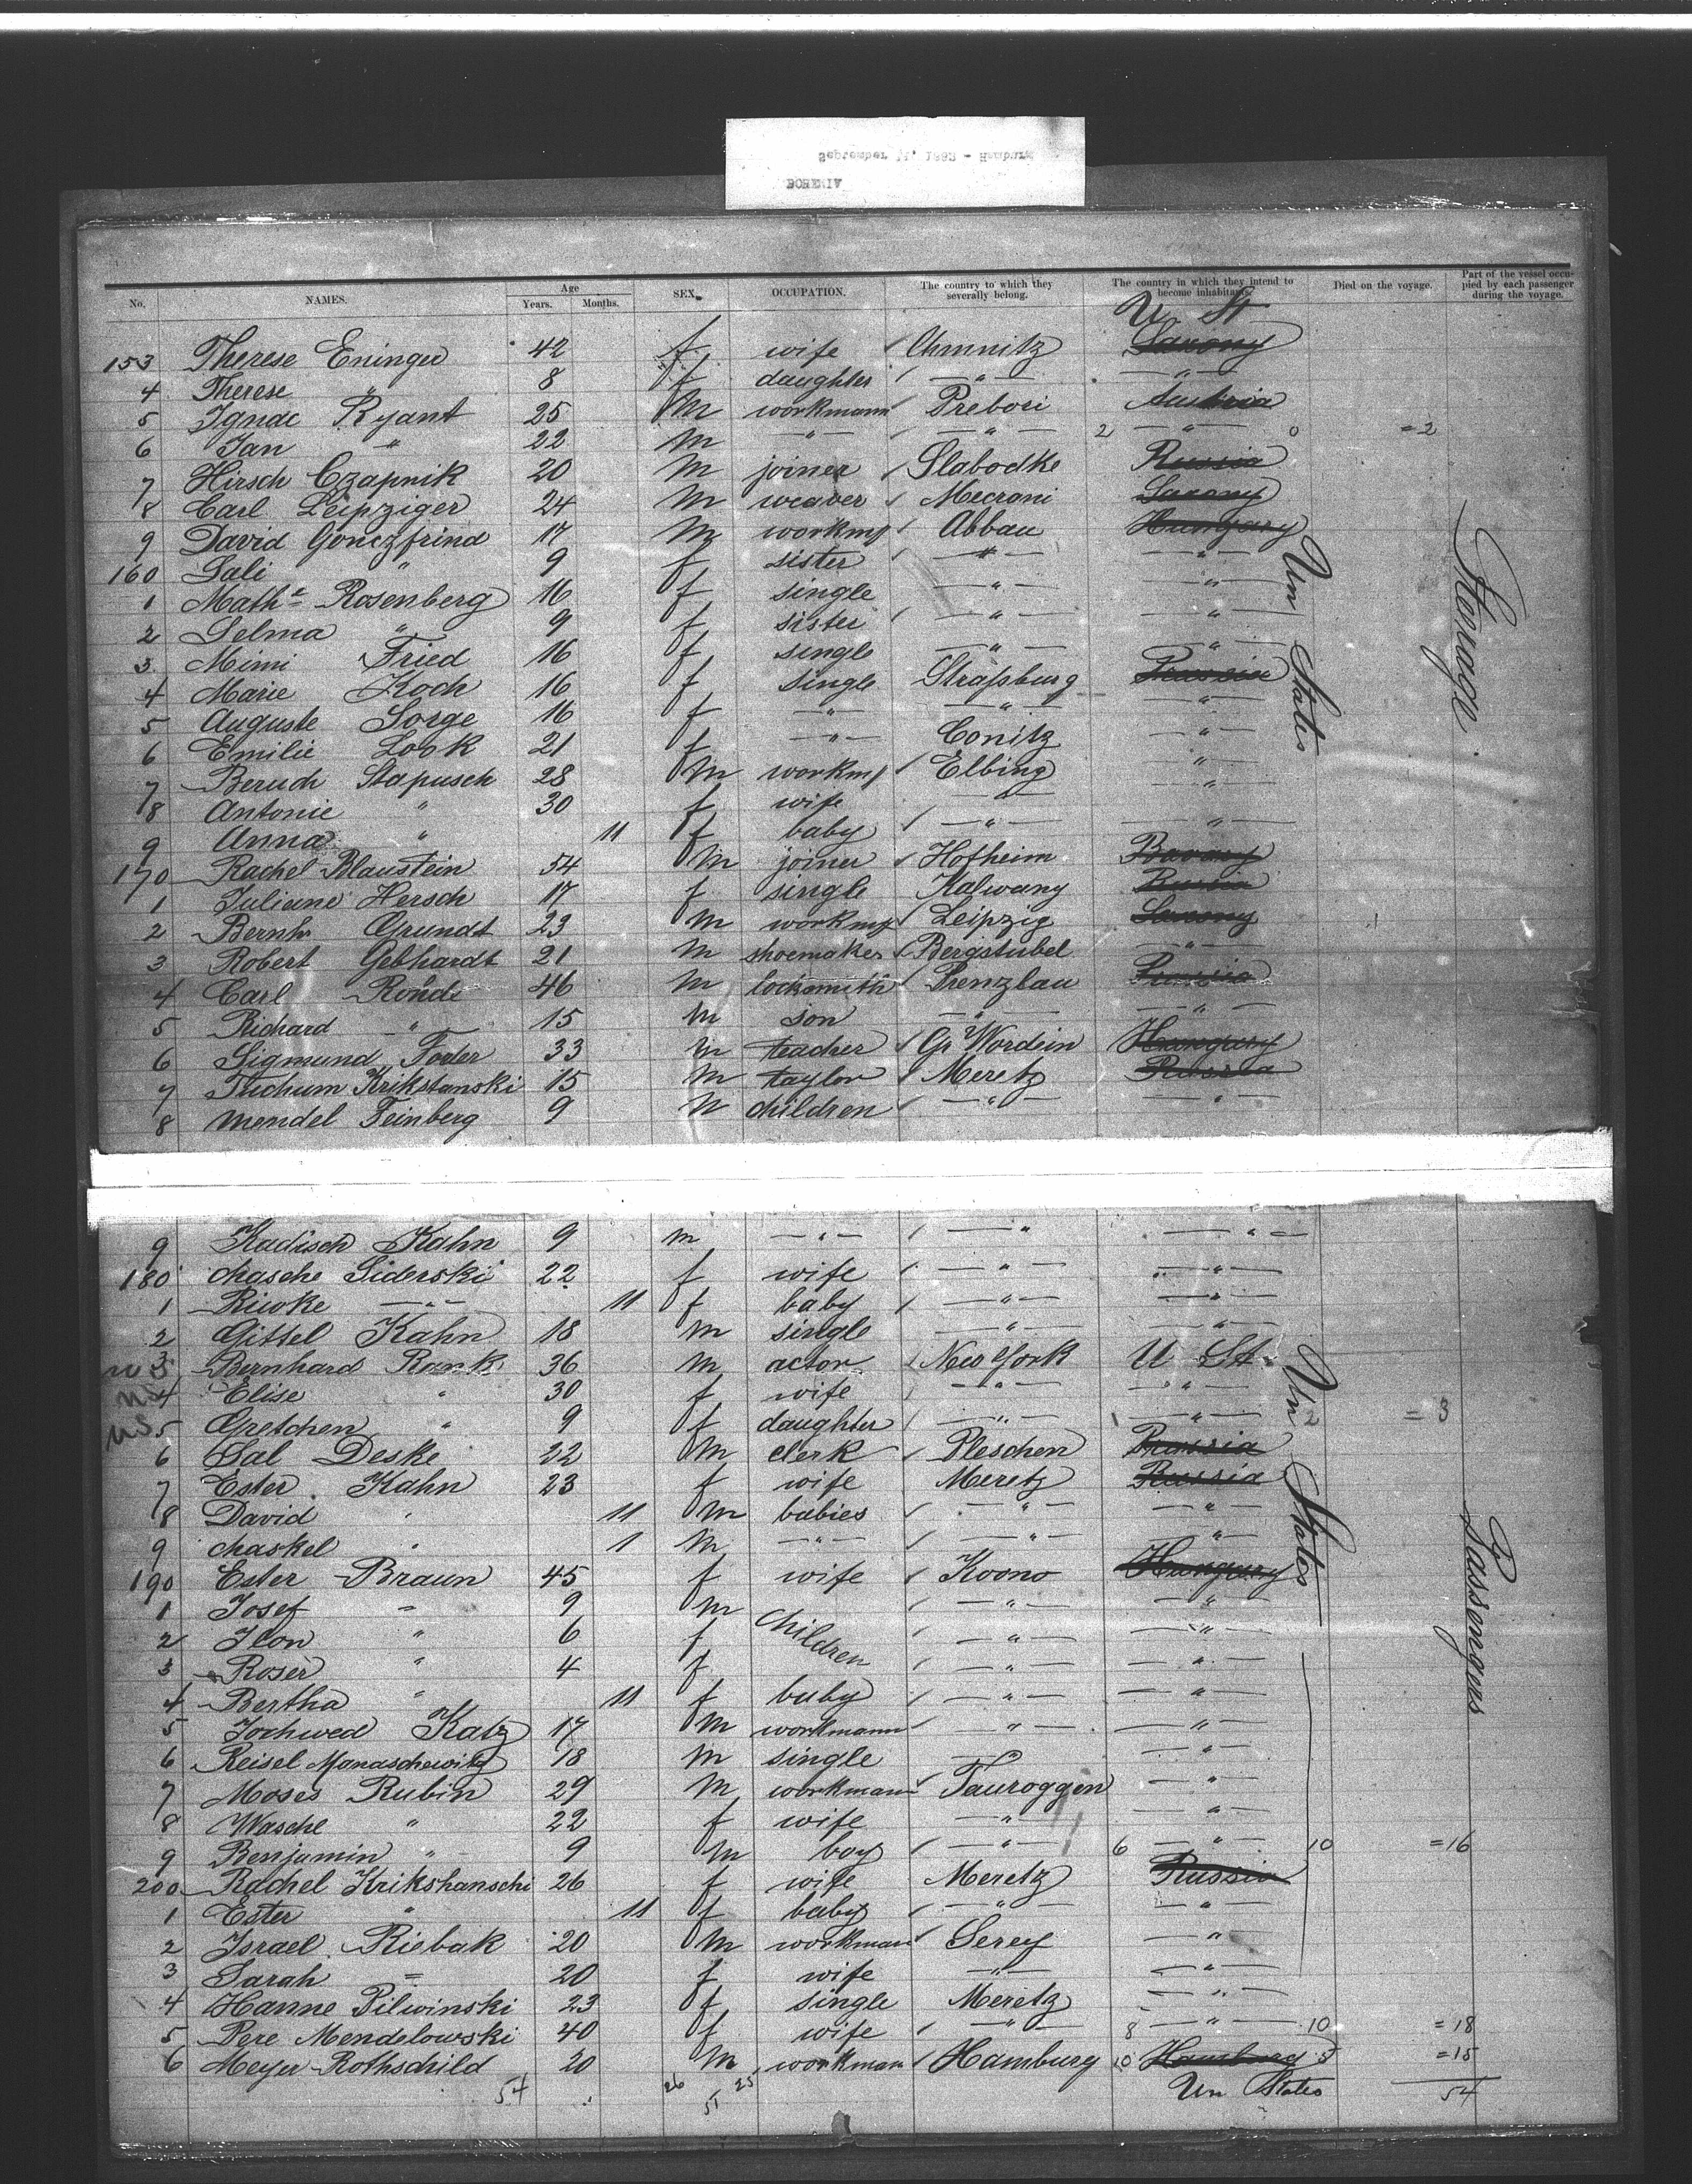 September 11, 1893 - Hamburg
BOHEMIA
No. NAMES. Age Years. Months. SEX. OCCUPATION. The country to which they severally belong. The country in which they intend to become inhabitants. Died on the voyage. Part of the vessel occupied by each passenger during the voyage.
U St
153 Therese Eninger 42 f wife Chmnitz Saxony
4 Therese " 8 f daughter — " — — " —
5 Ignac Ryant 25 m workmann Prebori Austria
6 Jan " 22 m — " — — " — 2 — " — 0 =2
7 Hirsch Czapnik 20 m joiner Slabodke Russia
8 Carl Leipziger 24 m weaver Mecrani Saxony
9 David Gonczfrind 17 m workmg Abbau Hungary
160 Sali " 9 f sister — " — — " —
1 Mathe Rosenberg 16 f single — " — — " —
2 Selma " 9 f sister — " — — " —
3 Mimi Fried 16 f single — " — — " —
4 Marie Koch 16 f single Straßburg Prussia
5 Auguste Sorge 16 f — " — — " — — " —
6 Emilie Look 21 f — " — Conitz — " —
7 Beruch Stapusch 28 m workmg Elbing — " —
8 Antonie " 30 f wife — " — — " —
9 Anna " 11 f baby — " — — " —
170 Rachel Blaustein 54 m joiner Hofheim Bavary
1 Juliane Hersch 17 f single Kalwany Russia
2 Bernh Grundt 23 m workmg Leipzig Saxony
3 Robert Gebhardt 21 m shoemaker Bergstubel — " —
4 Carl Ronde 46 m locksmith Prenzlau Prussia
5 Richard — " — 15 m son — " — — " —
6 Sigmund Foder 33 m teacher Gr Wordein Hungary
7 Tuchum Krikstanski 15 m taylor Meretz Russia
8 Mendel Feinberg 9 m children — " — — " —
Un States
Steerage
9 Kadisch Kahn 9 m — " — — " — — " —
180 Chasche Siderski 22 f wife — " — — " —
1 Riwke — " — 11 f baby — " — — " —
2 Gittel Kahn 18 m single — " — — " —
US 3 Bernhard Rank 36 m actor New York U St
US 4 Elise " 30 f wife — " — — " —
US 5 Gretchen " 9 f daughter — " — 1 — " — 2 = 3
6 Sal Deske 22 m clerk Pleschen Prussia
7 Ester Kahn 23 f wife Meretz Russia
8 David " 11 m babies — " — — " —
9 Chaskel " 1 m — " — — " — — " —
190 Ester Braun 45 f wife Koono Hungary
1 Josef " 9 m children — " — — " —
2 Ilon " 6 f — " — — " —
3 Roser " 4 f — " — — " —
4 Bertha " 11 f baby — " — — " —
5 Jochwed Katz 17 m workmann — " — — " —
6 Reisel Manaschewitz 18 m single — " — — " —
7 Moses Rubin 29 m workmann Tauroggen — " —
8 Wasche " 22 f wife — " — — " —
9 Benjamin " 9 m boy — " — 6 — " — 10 =16
200 Rachel Krikshanschi 26 f wife Meretz Russia
1 Ester " 11 f baby — " — — " —
2 Israel Riebak 20 m workman Serey — " —
3 Sarah = 20 f wife — " — — " —
4 Hanne Pilwinski 23 f single Meretz — " —
5 Pere Mendelowski 40 f wife — " — 8 — " — 10 =18
6 Meyer Rothschild 20 m workman Hamburg 10 Hamburg 5 =15
54 26 25 51 Un States 54
Un States
Passengers